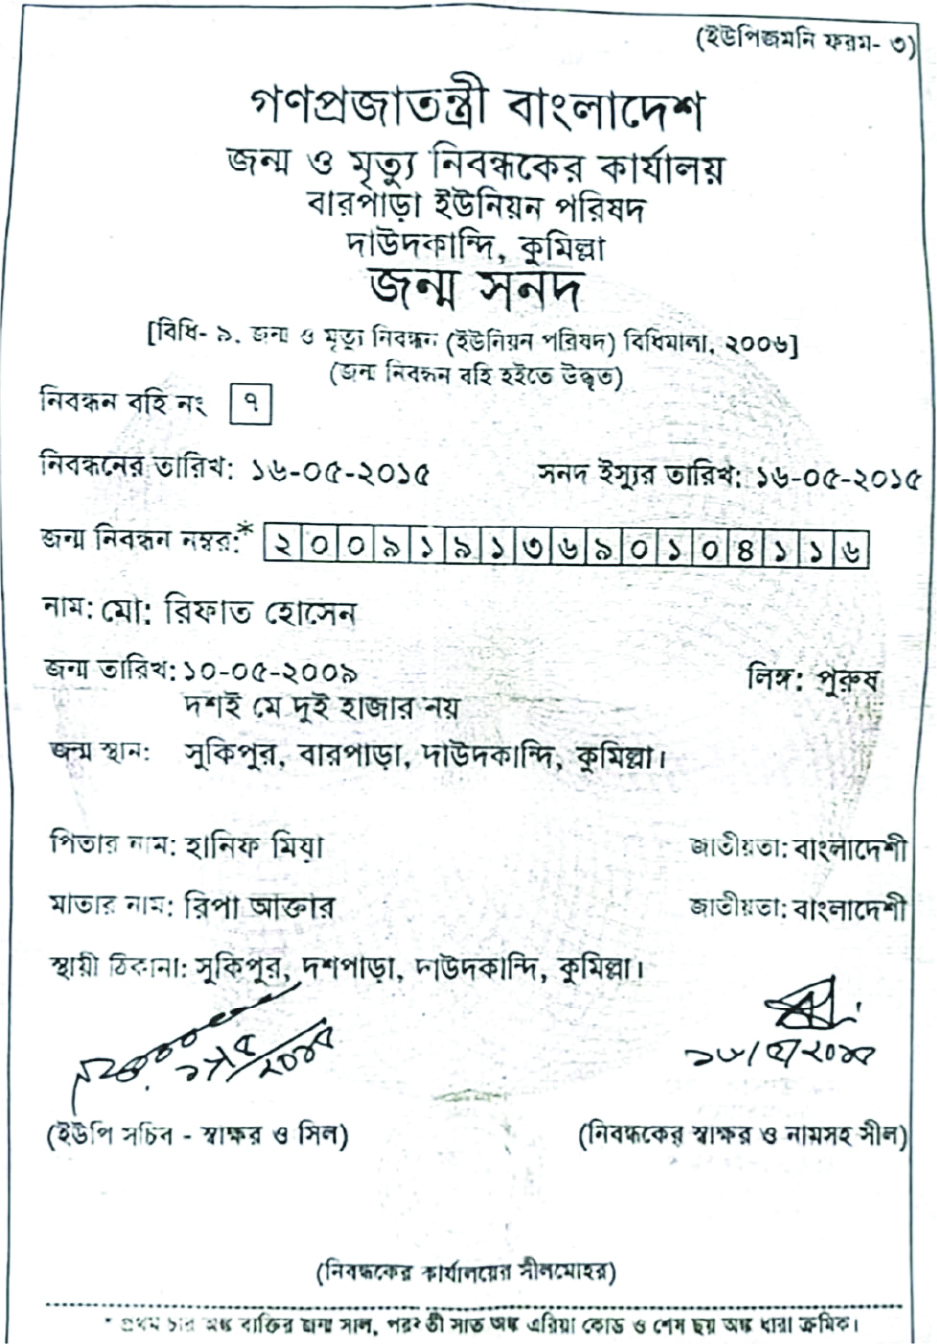 (ইউপিজমনি ফরম- ৩)
গণপ্রজাতন্ত্রী বাংলাদেশ
জন্ম ও মৃত্যু নিবন্ধকের কার্যালয়
বারপাড়া ইউনিয়ন পরিষদ
দাউদকান্দি, কুমিল্লা
জন্ম সনদ
[বিধি- ৯, জন্ম ও মৃত্যু নিবন্ধন (ইউনিয়ন পরিষদ) বিধিমালা, ২০০৬]
(জন্ম নিবন্ধন বহি হইতে উদ্ধৃত)
নিবন্ধন বহি নং ৭
নিবন্ধনের তারিখ: ১৬-০৫-২০১৫ সনদ ইস্যুর তারিখ: ১৬-০৫-২০১৫
জন্ম নিবন্ধন নম্বর:* ২০০৯১৯১৩৬৯০১০৪১১৬
নাম: মো: রিফাত হোসেন
জন্ম তারিখ: ১০-০৫-২০০৯ লিঙ্গ: পুরুষ
দশই মে দুই হাজার নয়
জন্ম স্থান: সুকিপুর, বারপাড়া, দাউদকান্দি, কুমিল্লা।
পিতার নাম: হানিফ মিয়া জাতীয়তা: বাংলাদেশী
মাতার নাম: রিপা আক্তার জাতীয়তা: বাংলাদেশী
স্থায়ী ঠিকানা: সুকিপুর, দশপাড়া, দাউদকান্দি, কুমিল্লা।
(ইউপি সচিব - স্বাক্ষর ও সিল) (নিবন্ধকের স্বাক্ষর ও নামসহ সীল)
(নিবন্ধকের কার্যালয়ের সীলমোহর)
* প্রথম চার অঙ্ক ব্যক্তির জন্ম সাল, পরবর্তী সাত অঙ্ক এরিয়া কোড ও শেষ ছয় অঙ্ক ধারা ক্রমিক।